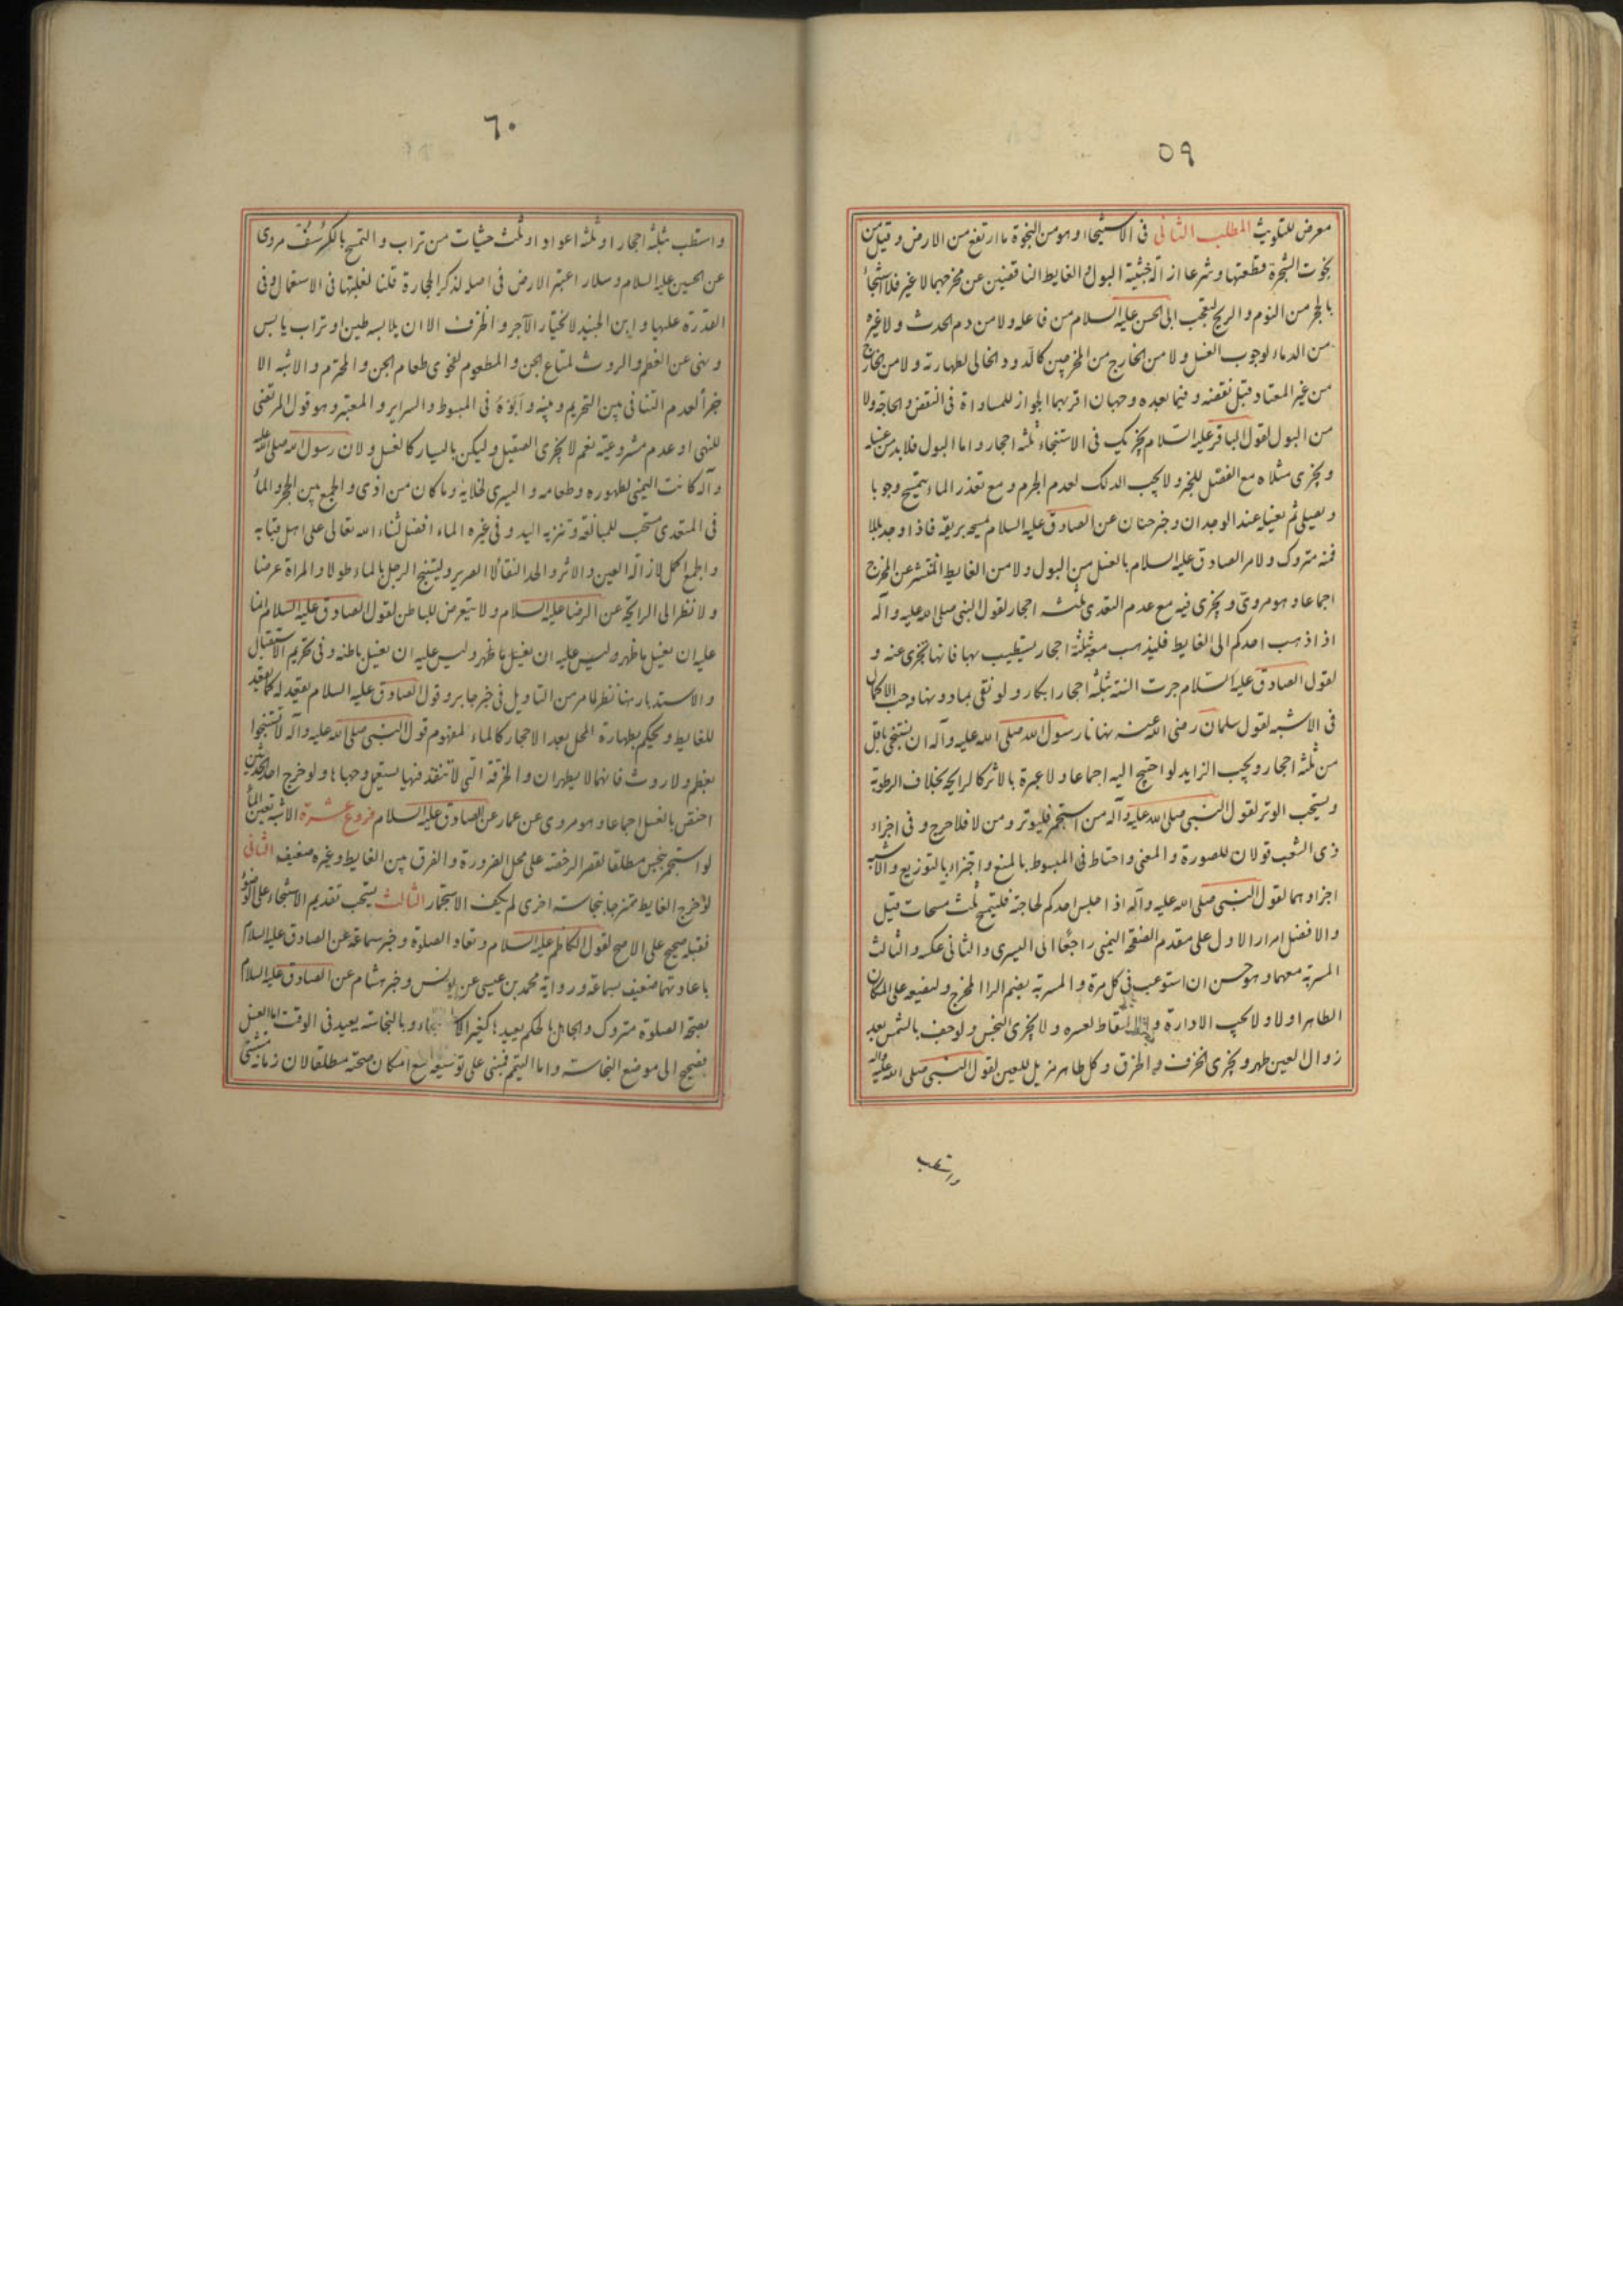 ٥٩
معرض للتلويث المطلب الثانى فى الاستنجا وهو من النجوة ما ارتفع من الارض وقيل من
نجوت الشجرة قطعتها وشرعا ازالة خبثية البول والغايط الناقضين عن مخرجهما لا غير فلا استنجأ
بالحجر من النوم والريح لتعجب ابى الحسن عليه السلام من فاعله ولا من دم الحدث ولا غيره
من الدماء لوجوب الغسل ولا من الخارج من المخرجين كالدود الخالى لطهارته ولا من الخارج
من غير المعتاد قبل نقضه وفيما بعده وجهان اقربهما الجواز للمساواة فى النقض والحاجة ولا
من البول لقول الباقر عليه السلام يجزيك فى الاستنجاء ثلثه احجار واما البول فلا بد من غسله
ويجزى مثلاه مع الفصل للخبر ولا يجب الدلك لعدم الجرم ومع تعذر الماء يتمسح وجوبا
ويصلى ثم يغسل عند الوجدان وخبر حنان عن الصادق عليه السلام يمسحه بريقه فاذا وجد بللا
فمنه متروك ولامر الصادق عليه السلام بالغسل من البول ولا من الغايط المنتشر عن المخرج
اجماعا وهو مروى ويجزى فيه مع عدم التعدى ثلثه احجار لقول النبى صلى الله عليه واله
اذا ذهب احدكم الى الغايط فليذهب معه بثلثة احجار يستطيب بها فانها تجزى عنه و
لقول الصادق عليه السلام جرت السنة بثلثه احجار ابكار ولو نقى بما دونها وجب الاكمال
فى الاشبه لقول سلمان رضى الله عنه نهانا رسول الله صلى الله عليه وآله ان نستنجى باقل
من ثلثه احجار ويجب الزايد لو احتيج اليه اجماعا ولا عبرة بالاثر كالرايحه بخلاف الرطوبة
ويستحب الوتر لقول النبى صلى الله عليه وآله من استجمر فليوتر ومن لا فلا حرج وفى اجزاء
ذى الشعب قولان للصورة والمعنى واحتاط فى المبسوط بالمنع واجتزاء بالتوزيع والاشبه
اجزاوهما لقول النبى صلى الله عليه وآله اذا جلس احدكم لحاجة فليتمسح ثلث مسحات قيل
والافضل امرار الاول على مقدم الصفحة اليمنى راجعا الى اليسرى والثانى عكسه والثالث
المسربة معهما وهو حسن ان استوعب فى كل مرة والمسربة بضم الرا المخرج وليضعه على المكان
الطاهر اولا ولا يجب الادارة لعسره ولا يجزى النجس ولو جف بالشمس بعد
زوال العين طهر ويجزى الخزف والخرق وكل طاهر مزيل للعين لقول النبى صلى الله عليه واله
واستطب
٦٠
واستطب بثلثه احجار او ثلثه اعواد او ثلث حثيات من تراب والتمسح بالكرسف مروى
عن الحسين عليه السلام وسلار اعتبر الارض فى اصله لذكر الحجارة قلنا لغلبتها فى الاستعمال وفى
القدرة عليها وابن الجنيد لا يختار الآجر والخزف الا ان يلابسه طين او تراب يابس
ونهى عن العظم والروث لمتاع الجن والمطعوم لفحوى طعام الجن والمحترم والاشبه الا
جزأ لعدم التنافى بين التحريم وبينه واَبَوْهُ فى المبسوط والسراير والمعتبر وهو قول المرتضى
للنهى او عدم مشروعيته نعم لا يجزى الصقيل وليكن باليسار كالغسل ولان رسول الله صلى الله عليه
وآله كانت اليمنى لطهوره وطعامه واليسرى لخلايه وما كان من اذى والجمع بين الحجر والمأ
فى المتعدى مستحب للمبالغة وتنزيه اليد وفى غيره الماء افضل لثناء الله تعالى على اهل قبا به
واجمع اكمل لازالة العين والاثر والحد النقأ لا الصرير وليستنج الرجل بالماء طولا والمراة عرضا
ولا نظر الى الرايحة عن الرضا عليه السلام ولا يتعرض للباطن لقول الصادق عليه السلام انما
عليه ان يغسل ما ظهر وليس عليه ان يغسل باطنه وفى تحريم الاستقبال
والاستدبار هنا نظر لما مر من التاويل فى خبر جابر وقول الصادق عليه السلام يقعد له كما يقعد
للغايط ويحكم بطهارة المحل بعد الاحجار كالماء لمفهوم قول النبى صلى الله عليه وآله لا تستنجوا
بعظم ولا روث فانهما لا يطهران والخرقة التى لا تنفذ فيها يستعمل وجهاها ولو خرج احد الحدثين
اختص بالغسل اجماعا وهو مروى عن عمار عن الصادق عليه السلام فروع عشرة الاشبه تعين المأ
لو استجمر بنجس مطلقا لقصر الرخصة على محل الضرورة والفرق بين الغايط وغيره ضعيف الثانى
لو خرج الغايط ممتزجا بنجاسه اخرى لم يكف الاستجمار الثالث يستحب تقديم الاستنجاء على الوضوء
فقبله صحيح على الاصح لقول الكاظم عليه السلام وتعاد الصلوة وخبر سماعة عن الصادق عليه السلام
باعادتهما ضعيف بسماعة ورواية محمد بن عيسى عن يونس وخبر هشام عن الصادق عليه السلام
بصحة الصلوة متروك والجاهل بالحكم يعيد وبالنجاسة يعيد فى الوقت اما الغسل
فيصح الى موضع النجاسه واما التيمم فمبنى على توسيعه مع امكان صحته مطلقا لان زمانه مستثنى